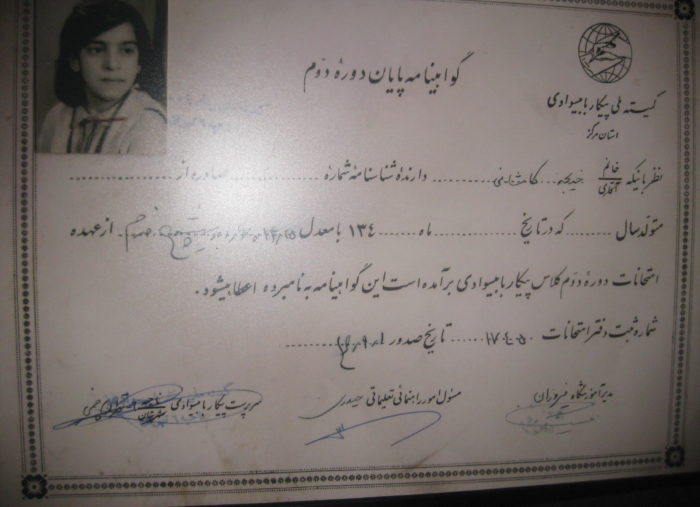 گواهینامه پایان دورهٔ دوّم
کمیته ملی پیکار با بیسوادی
استان مرکز
نظر باینکه خانم آقای خدیجه کاشانی دارندهٔ شناسنامهٔ شماره صادره از
متولد سال که در تاریخ ماه ۱۳۴ با معدل از عهده
امتحانات دورهٔ دوّم کلاس پیکار با بیسوادی برآمده است این گواهینامه به نامبرده اعطا میشود.
شمارهٔ ثبت دفتر امتحانات ۱۷۴۵۰ تاریخ صدور
مدیر آموزشگاه فروزان
مسئول امور راهنمائی تعلیماتی حیدری
سرپرست پیکار با بیسوادی